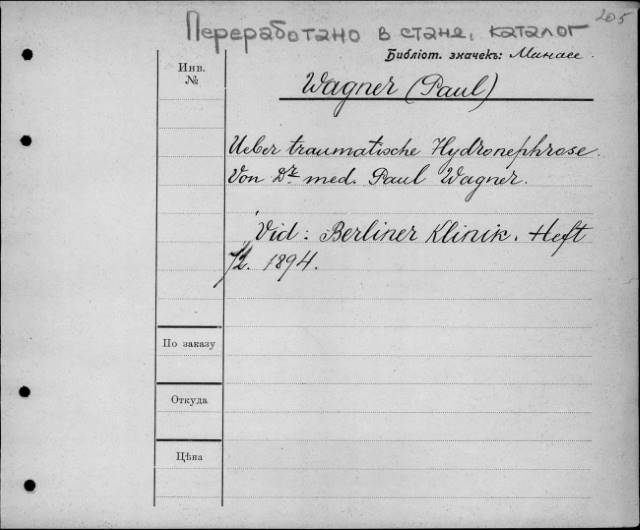 205
Переработано в станд. каталог
Библіот. значекъ: Минасс.
Инв.
№
Wagner (Paul)
Ueber traumatische Hydronephrose.
Von Dr. med. Paul Wagner.
Vid: Berliner Klinik. Heft
72. 1894.
По заказу
Откуда
Цѣна